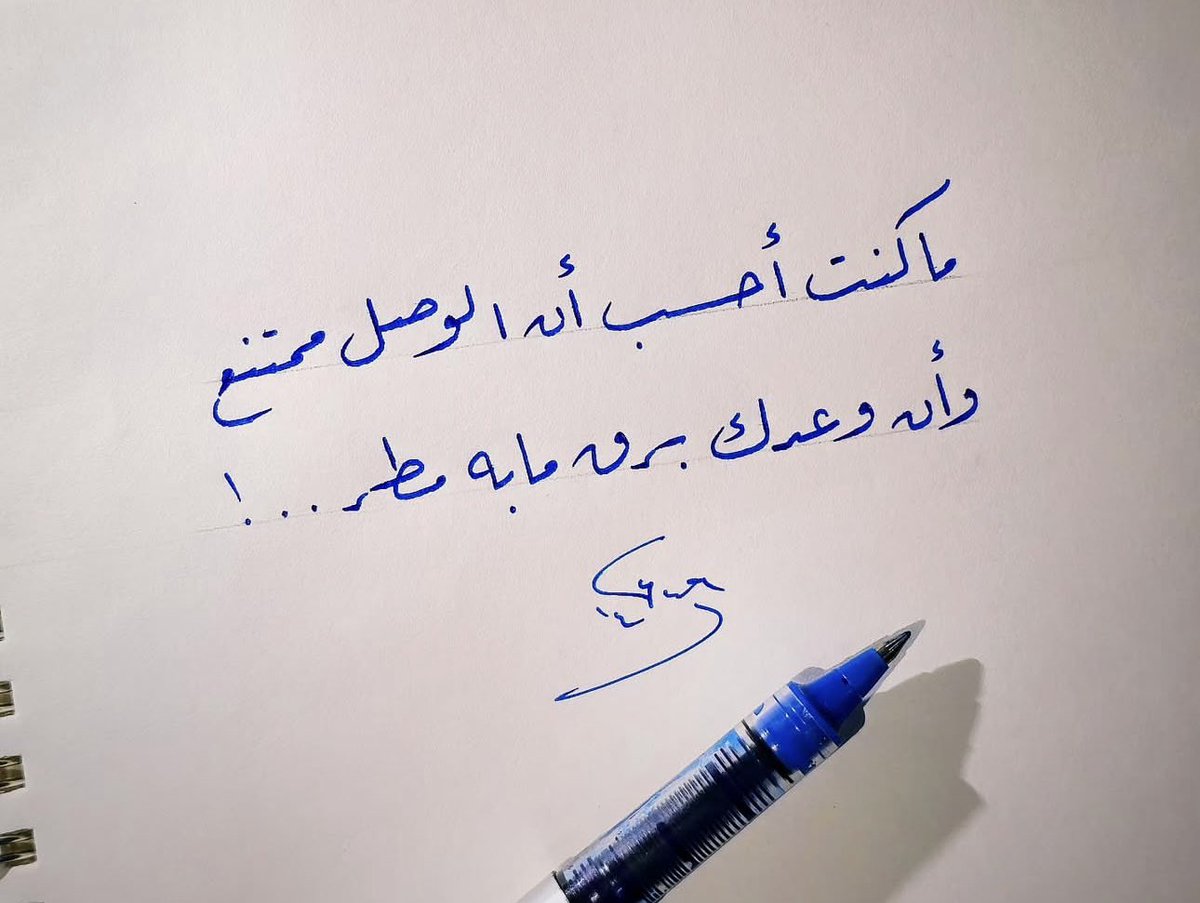 ما كنت أحسب أن الوصل ممتنع
وأن وعدك برق ما به مطر ...!